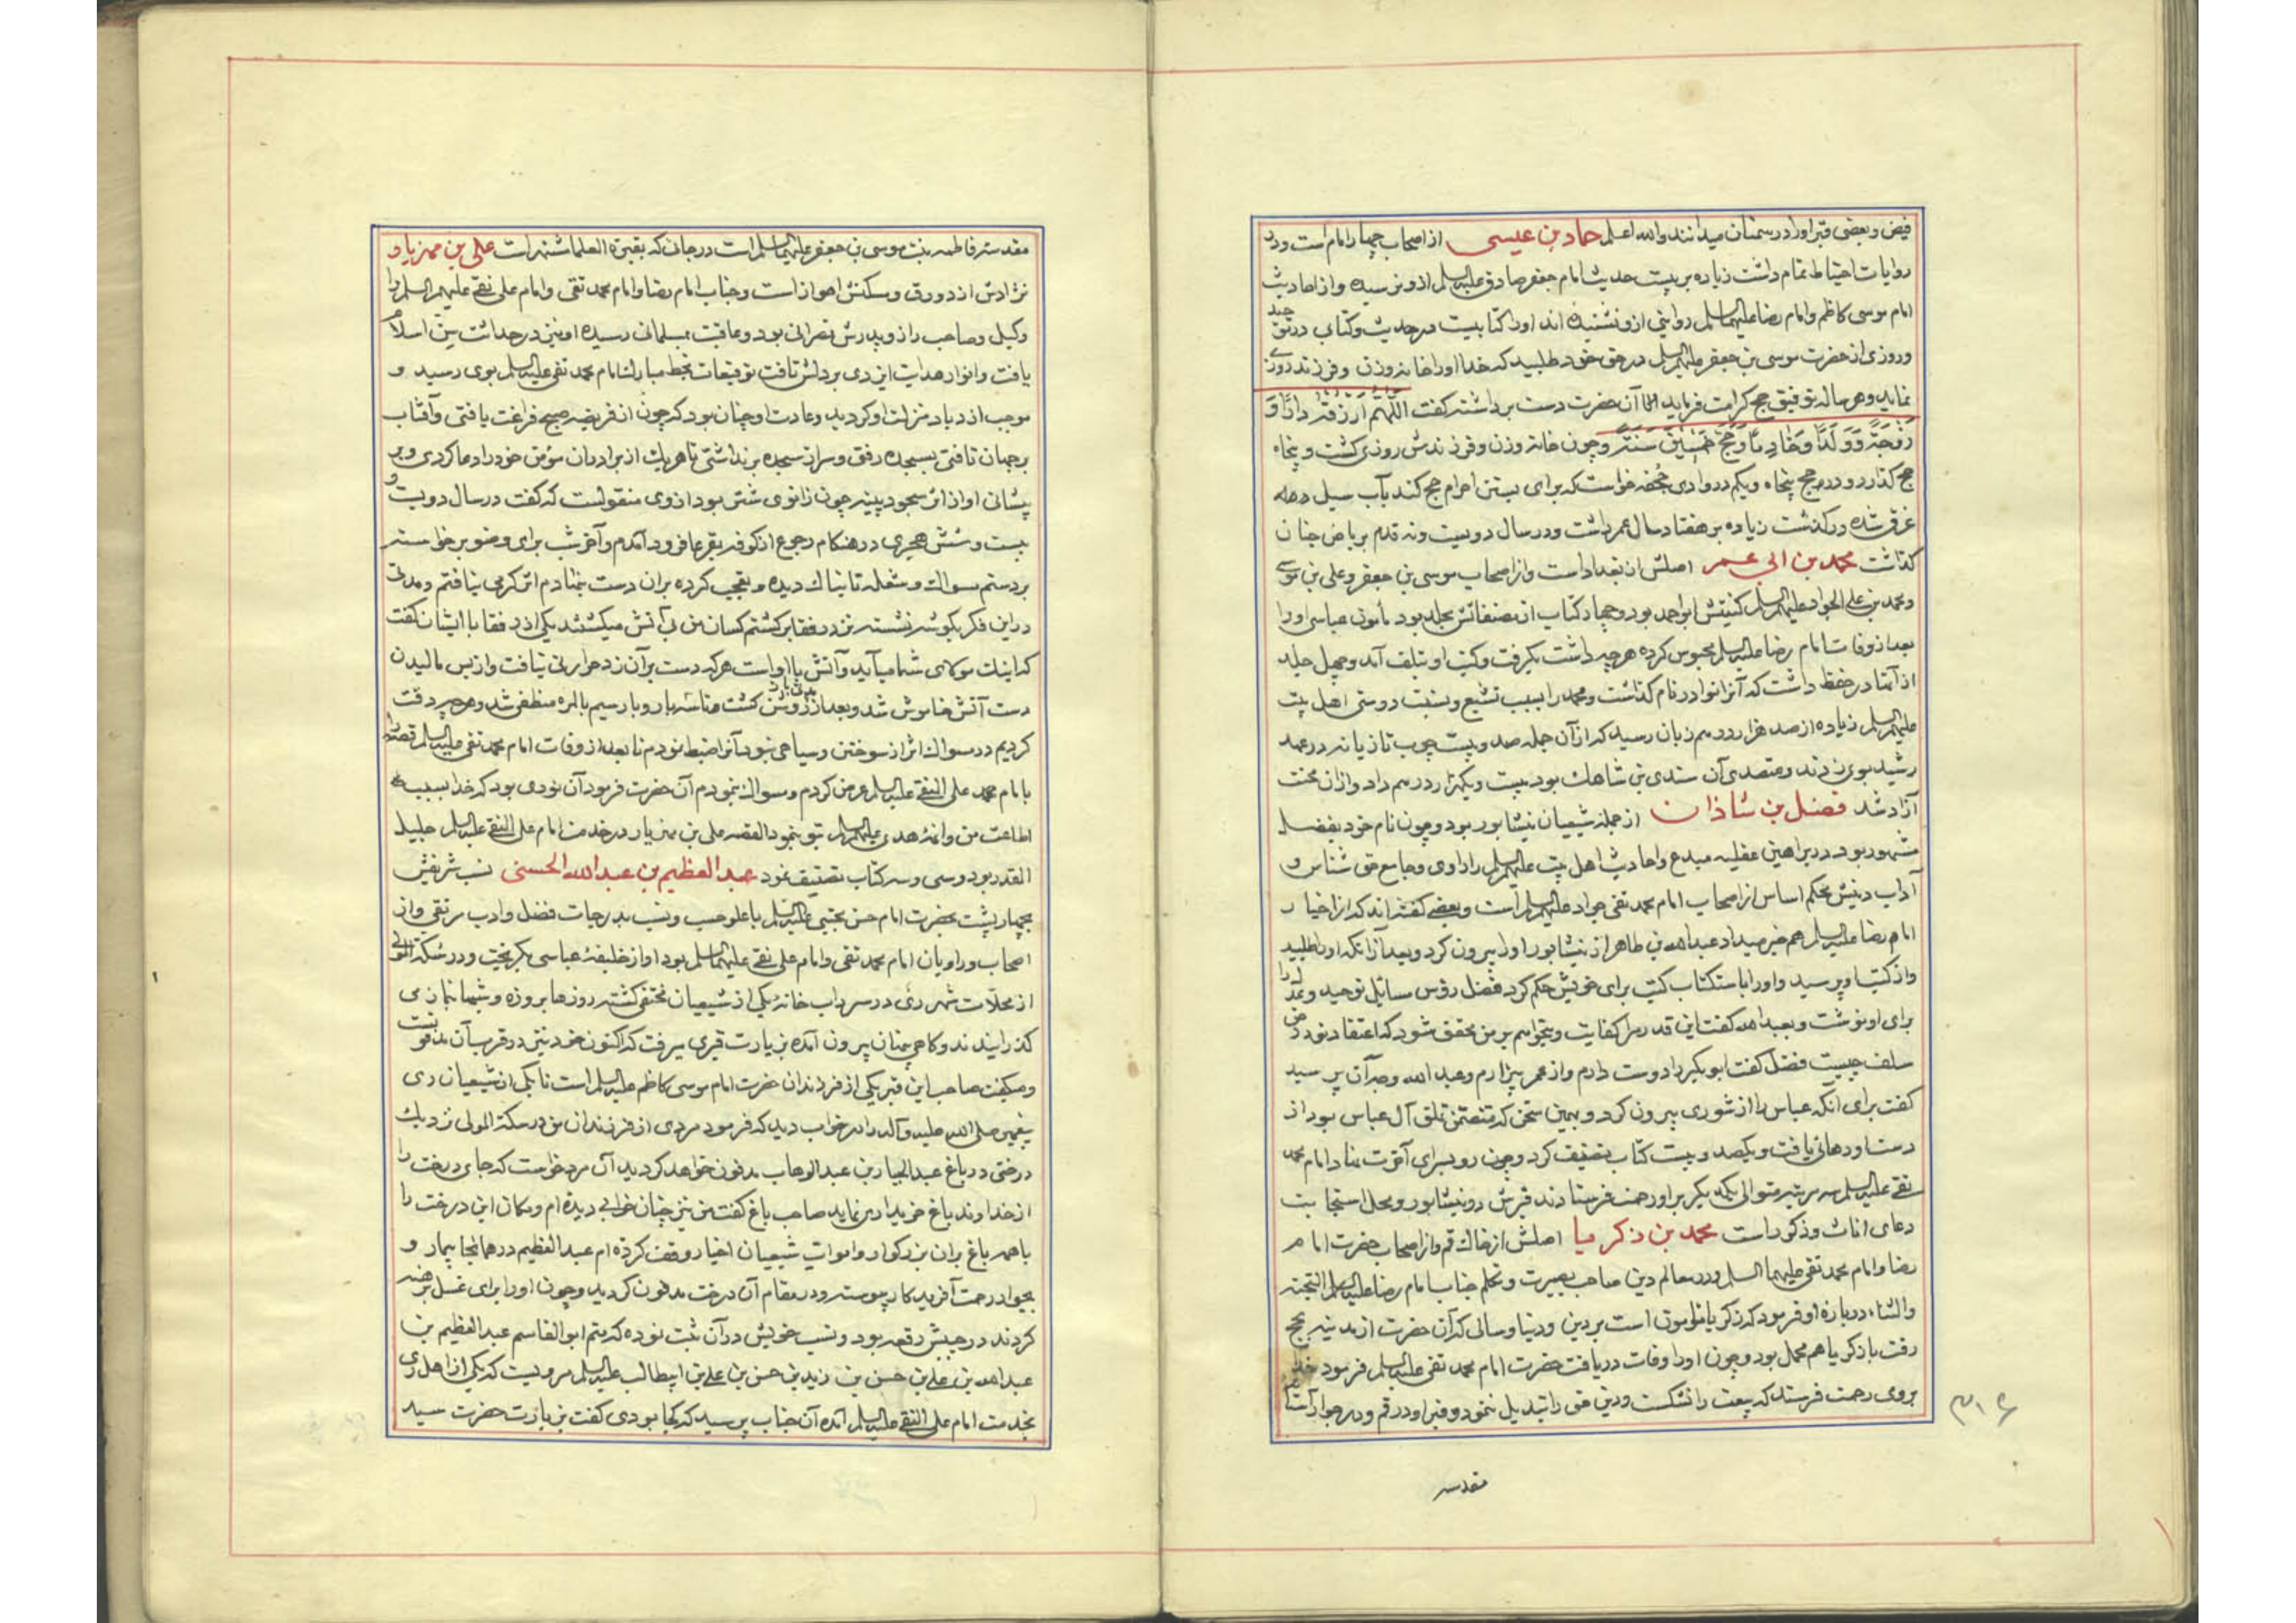 فیض و بعضی قبر او را در سمنان میدانند والله اعلم حماد بن عیسی از اصحاب چهار امام است و در
روایات احتیاط تمام داشت زیاده بر بیست حدیث امام جعفر صادق علیه السلم ازو نرسیده و از احادیث
امام موسی کاظم و امام رضا علیهما السلم روایتی ازو نشنیده اند او را کتابیست در حدیث و کتابی در
و روزی از حضرت موسی بن جعفر علیهم السلم در حق خود طلبید که خدا او را خانه و زن و فرزند روزی
نماید و هر ساله توفیق حج کرامت فرماید آن حضرت دست برداشته گفت اللهم ارزقه دارا و
زوجة و ولدا و خادما و حج خمسین سنة و چون خانه و زن و فرزندش روزی گشت و پنجاه
حج گذارد و در حج پنجاه و یکم در وادی جحفه خواست که برای بستن احرام حج کند بآب سیل
غرق شده درگذشت زیاده بر هفتاد سال عمر داشت و در سال دویست و نه قدم بریاض جنان
گذاشت محمد بن ابی عمیر اصلش از بغداد است و از اصحاب موسی بن جعفر و علی بن موسی
و محمد بن علی الجواد علیهم السلم کنیتش ابو احمد بود و چهار کتاب از مصنفاتش مجلد بود مأمون عباسی او را
بعد از وفات امام رضا علیه السلم محبوس کرده هر چه داشت بگرفت و کتب او بتلف آمد و چهل جلد
از آنها در حفظ داشت که آنرا نوادر نام گذاشت و محمد را بسبب تشیع و بنسبت دوستی اهل بیت
علیهم السلم زیاده از صد هزار درهم زیان رسید که از آن جمله صد و بیست چوب تازیانه در عهد
رشید بوی زدند و متصدی آن سندی بن شاهک بود بیست و یکهزار درهم داد و از آن محنت
آزاد شد فضل بن شاذان از جمله شیعیان نیشابور بود و چون نام خود بفضل
مشهور بود در براهین عقلیه مبدع و احادیث اهل بیت علیهم السلم را راوی و جامع حق شناس و
آداب دینش محکم اساس از اصحاب امام محمد تقی جواد علیهم السلم است و بعضی گفته اند که از اخیار
امام رضا علیه السلم هم خبر میداد عبدالله بن طاهر از نیشابور او را بیرون کرد و بعد از آنکه او را طلبید
و از کتب او پرسید و او را باستکتاب کتب برای خویش حکم کرد فضل رؤس مسائل توحید و عدل را
برای او نوشت و بعبدالله گفت این قدر مرا کفایت و میخواهم بر من محقق شود که اعتقاد تو در حق
سلف چیست فضل گفت ابوبکر را دوست دارم و از عمر بیزارم و عبد الله وجه آن پرسید
گفت برای آنکه عباس را از شوری بیرون کرد و بهمین سخن که متضمن تملق آل عباس بود از
دست او رهائی یافت و یکصد و بیست کتاب تصنیف کرد و چون رو بسرای آخرت نهاد امام محمد
تقی علیه السلم سه مرتبه متوالی یکدیگر بر او رحمت فرستادند قبرش در نیشابور و محل استجابت
دعای اناث و ذکور است محمد بن ذکریا اصلش از خاک قم و از اصحاب حضرت امام
رضا و امام محمد تقی علیهما السلم و در معالم دین صاحب بصیرت و تکلم جناب امام رضا علیه السلم التحیة
والثناء درباره او فرمود که زکریا مأمون است بر دین و دنیا و سالی که آن حضرت از مدینه بحج
رفت با ذکریا هم محمل بود و چون او را وفات دریافت حضرت امام محمد تقی علیه السلم فرمود خدا
بروی رحمت فرستد که بیعت را نشکست و دین حق را تبدیل ننمود و قبر او در قم و در جوار آستانه
مقدسه
مقدسه فاطمه بنت موسی بن جعفر علیهما السلم است در جائی که بمقبرة العلما اشتهار است علی بن مهزیار
نژادش از دورق و مسکنش اهواز است و جناب امام رضا و امام محمد تقی و امام علی نقی علیهم السلم را
وکیل و صاحب راز و پدرش نصرانی بود و عاقبت بمسلمانی رسیده او نیز در حداثت سن اسلام
یافت و انوار هدایت ایزدی بر دلش تافت توقیعات بخط مبارک امام محمد تقی علیه السلم بوی رسید و
موجب ازدیاد منزلت او گردید و عادت او چنان بود که چون از فریضه صبح فراغت یافتی و آفتاب
بر جهان تافتی بسجده رفتی و سر از سجده برنداشتی تا هر یک از برادران مؤمن خود را دعا کردی و بر
پیشانی او از اثر سجود پینه چون زانوی شتر بود از وی منقولست که گفت در سال دویست و
بیست و شش هجری در هنگام رجوع از کوفه بقرعا فرود آمدم و آخر شب برای وضو برخواسته
بر دستم مسواک و شعله تابناک دیده و تعجب کرده بر آن دست نهادم اثر گرمی نیافتم و مدتی
در این فکر بگوشه نشسته نزد رفقا برگشتم کسان من بی آتش میگشتند یکی از رفقا با ایشان گفت
که اینک مولای شما میآید و آتش با اوست هر که دست بر آن زد حرارتی نیافت و از بس مالیدن
دست آتش خاموش شد و بعد از زمانی روشن گشت تا سه بار و بار سیم بالمره منطفی شد و هر چه دقت
کردیم در مسواک اثر از سوختن و سیاهی نبود آنرا ضبط نمودم تا بعد از وفات امام محمد تقی علیه السلم قصه را
بامام محمد علی النقی علیه السلم عرض کردم و مسواک بنمودم آن حضرت فرمود آن نوری بود که خدا بسبب
اطاعت من و ائمه هدی علیهم السلم بتو بنمود القصه علی بن مهزیار در خدمت امام علی النقی علیه السلم جلیل
القدر بود و سی و سه کتاب تصنیف نمود عبد العظیم بن عبد الله الحسنی نسب شریفش
بچهار پشت بحضرت امام حسن مجتبی علیه السلم با علو حسب و نسب بدرجات فضل و ادب مرتقی و از
اصحاب و راویان امام محمد تقی و امام علی نقی علیهما السلم بود او از خلیفه عباسی بگریخت و در سکة الموالی
از محلات شهر ری در سرداب خانه یکی از شیعیان مختفی گشته روزها بروزه و شبها بنماز می
گذرانیدند و گاهی پنهان بیرون آمده بزیارت قبری میرفت که اکنون خود نیز در قرب آن مدفونست
و میگفت صاحب این قبر یکی از فرزندان حضرت امام موسی کاظم علیه السلم است تا یکی از شیعیان ری
پیغمبر صلی الله علیه و آله را در خواب دید که فرمود مردی از فرزندان من در سکة الموالی نزدیک
درختی در باغ عبد الجبار بن عبد الوهاب مدفون خواهد گردید آن مرد خواست که جای درخت را
از خداوند باغ خریداری نماید صاحب باغ گفت من نیز چنان خوابی دیده ام و مکان این درخت را
با همه باغ بر آن بزرگوار و اموات شیعیان اخیار وقف کرده ام عبد العظیم در همانجا بیمار و
بجوار رحمت آفریدگار پیوسته و در مقام آن درخت مدفون گردید و چون او را برای غسل برهنه
کردند در جیبش رقعه بود و نسب خویش در آن ثبت نموده که منم ابو القاسم عبد العظیم بن
عبدالله بن علی بن حسن بن زید بن حسن بن علی بن ابیطالب علیه السلم مرویست که یکی از اهل ری
بخدمت امام علی النقی علیه السلم آمده آن جناب پرسید که کجا بودی گفت بزیارت حضرت سید